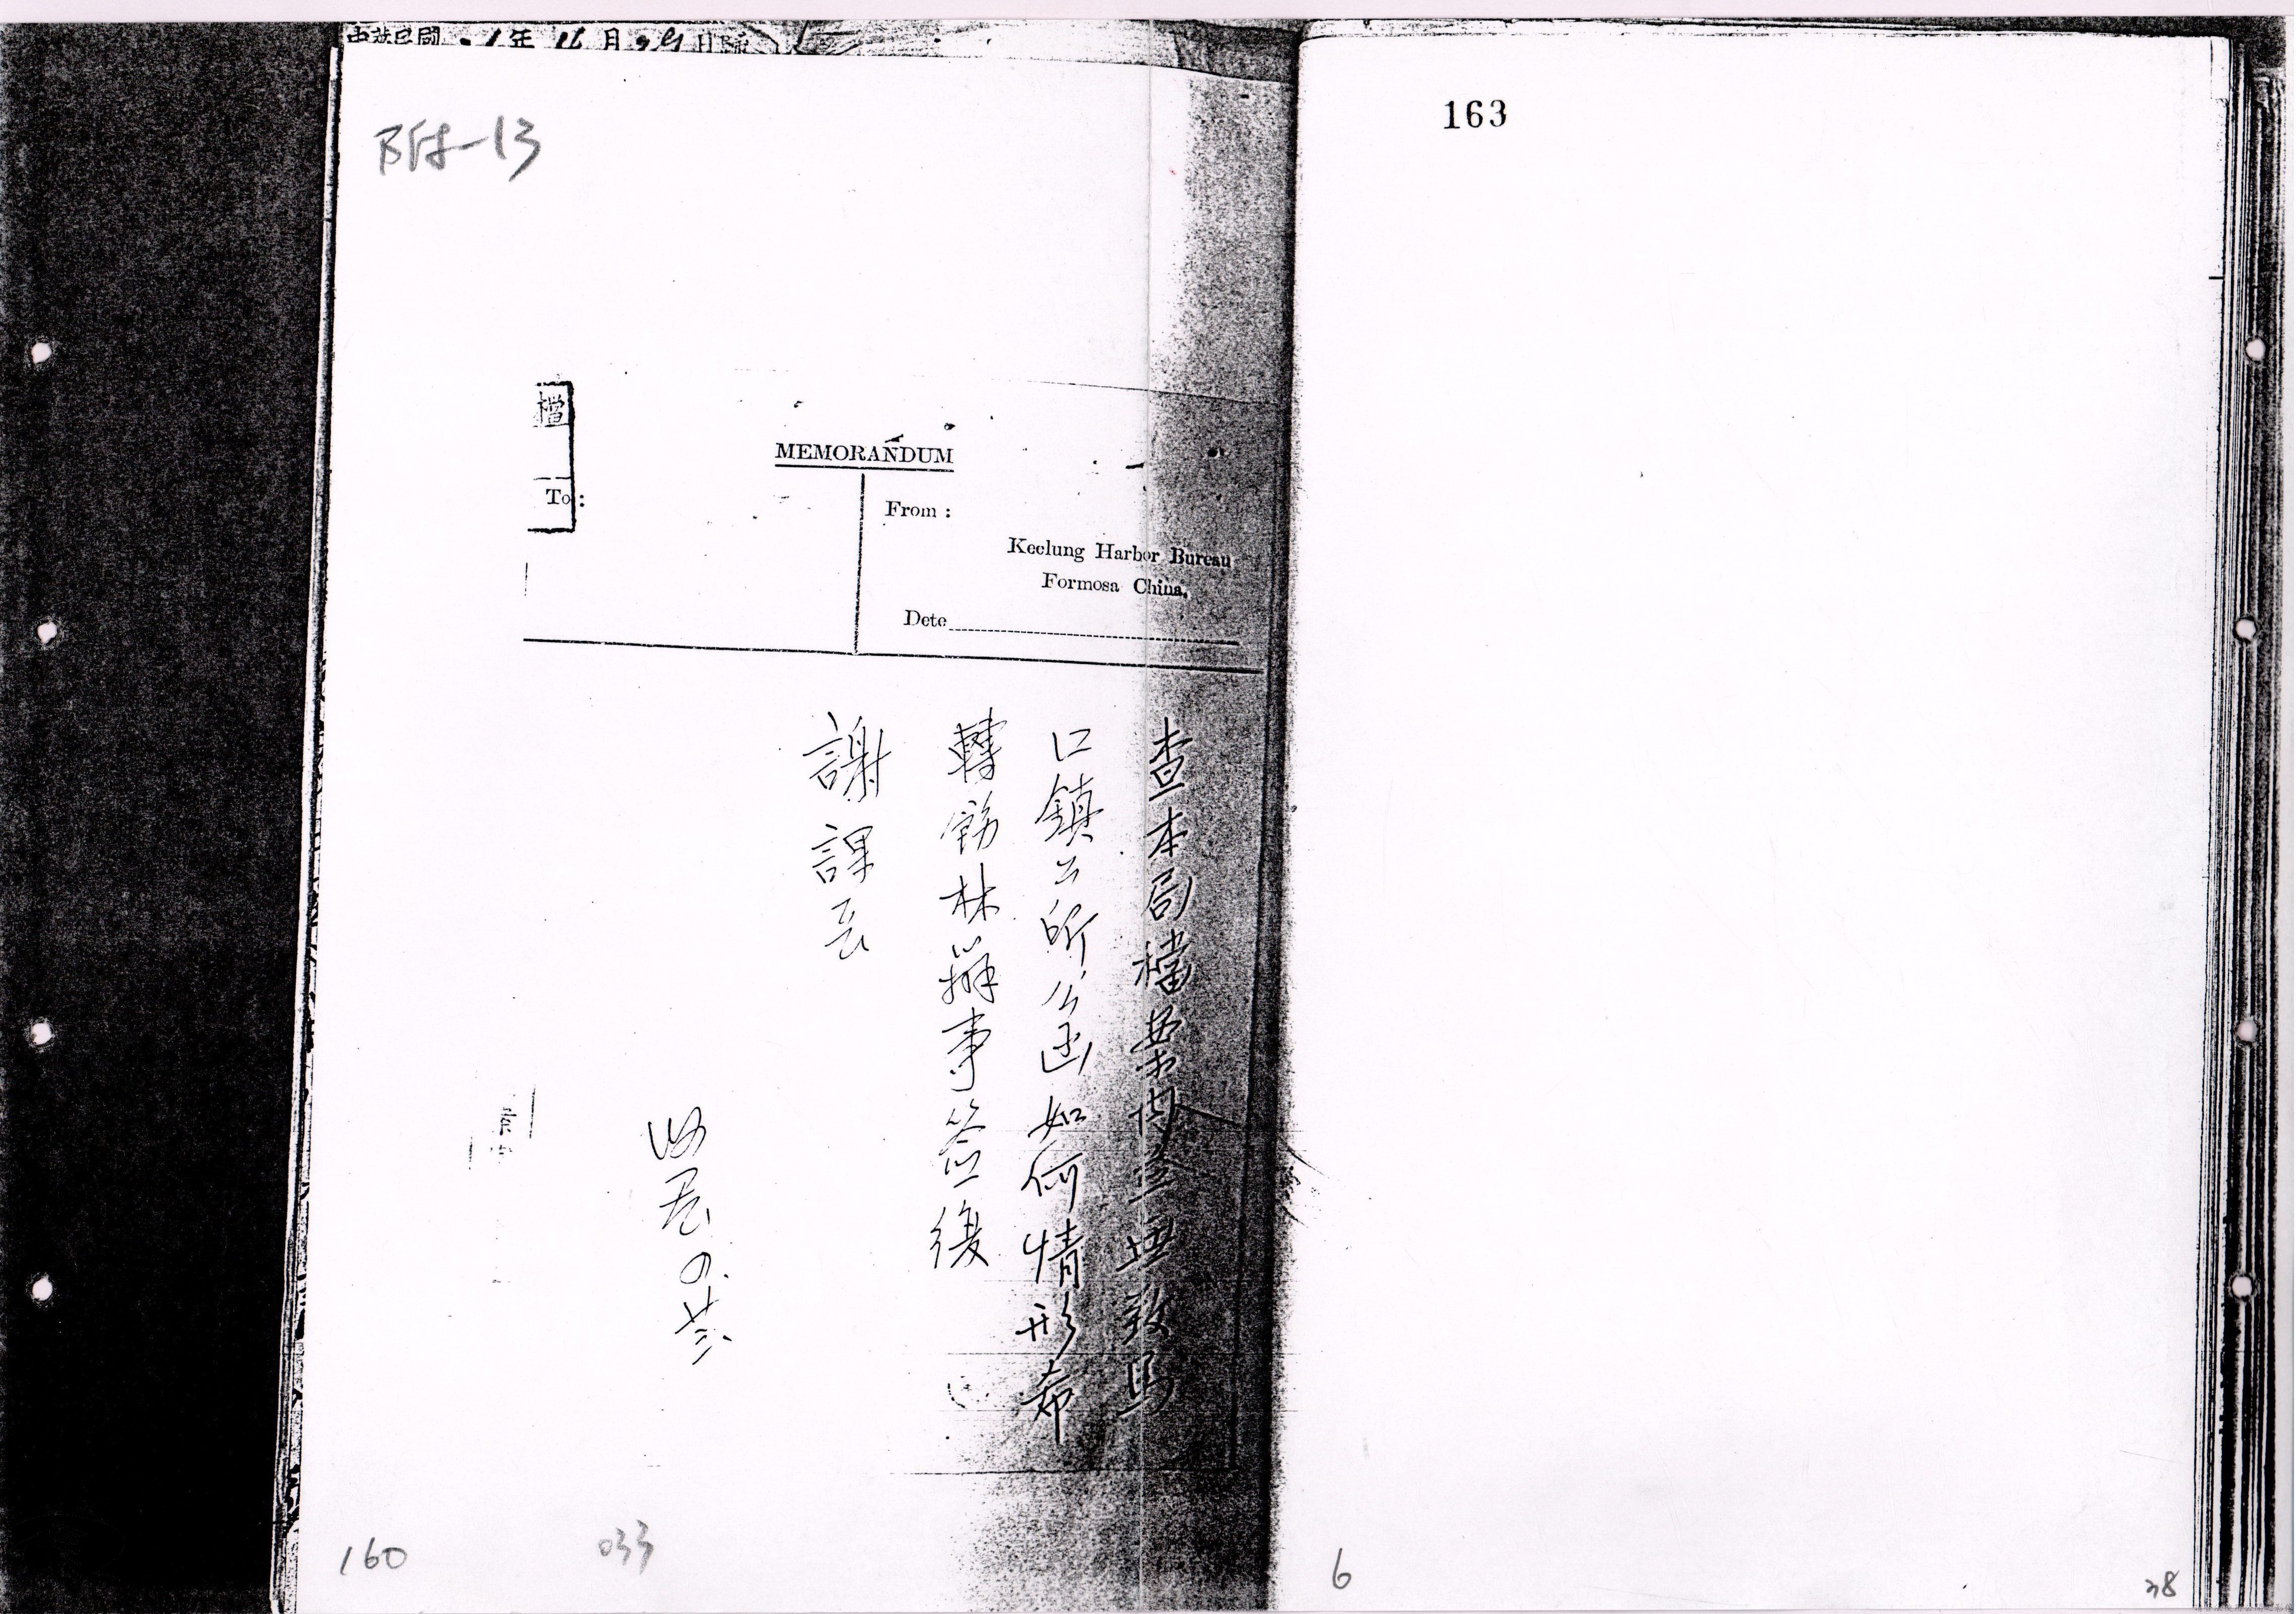 附-13
163
檔
MEMORANDUM
To :
From :
Keelung Harbor Bureau
Formosa China.
Dete
查本局檔案內並無致馬
口鎮公所公函如何情形希
轉飭林辦事簽復
謝課長
160
033
6
38